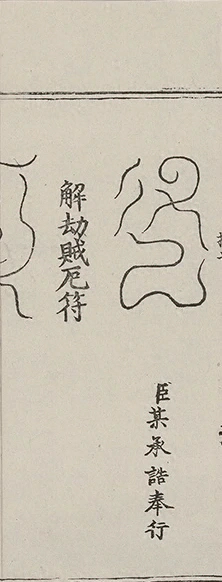 臣某承誥奉行
解劫賊厄符